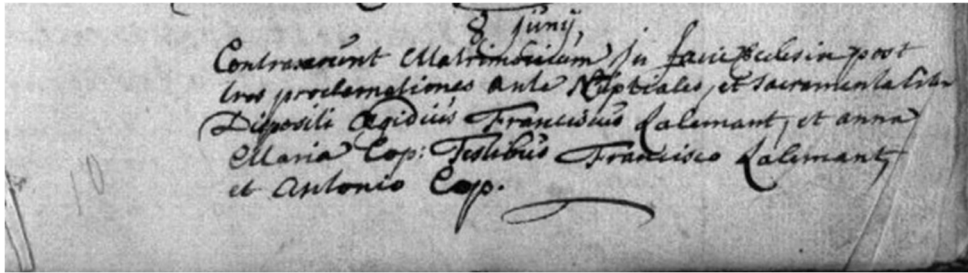 8 Junij,
Contraxerunt Matrimonium In facie Ecclesiæ post
tres proclamationes ante Nuptiales, et sacramentaliter
Dispositi Ægidius Franciscus Lalemant, et anna
Maria Cop: Testibus Francisco Lalemant,
et Antonio Cop.